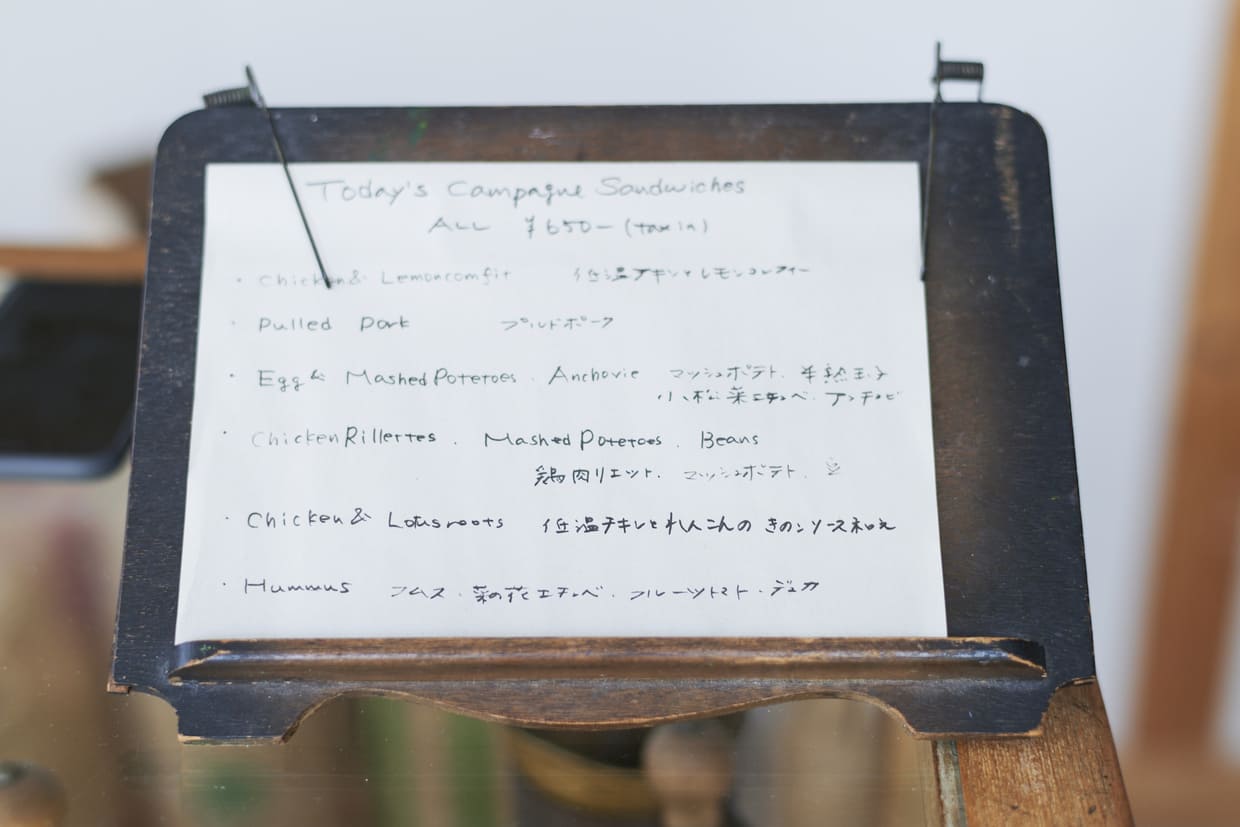 Today's Campagne Sandwiches
ALL ¥650-(tax in)
・Chicken & Lemoncomfit 低温チキンとレモンコンフィー
・Pulled Pork プルドポーク
・Egg & Mashed Poteroes . Anchovie マッシュポテト. 半熟玉子
小松菜エチュベ. アンチョビ
・Chicken Rillertes . Mashed Poteroes . Beans
鶏肉リエット. マッシュポテト.
・Chicken & Lotusroots 低温チキンとれんこんの きのこソース和え
・Hummus フムス・菜の花エチュベ. フルーツトマト・デュカ